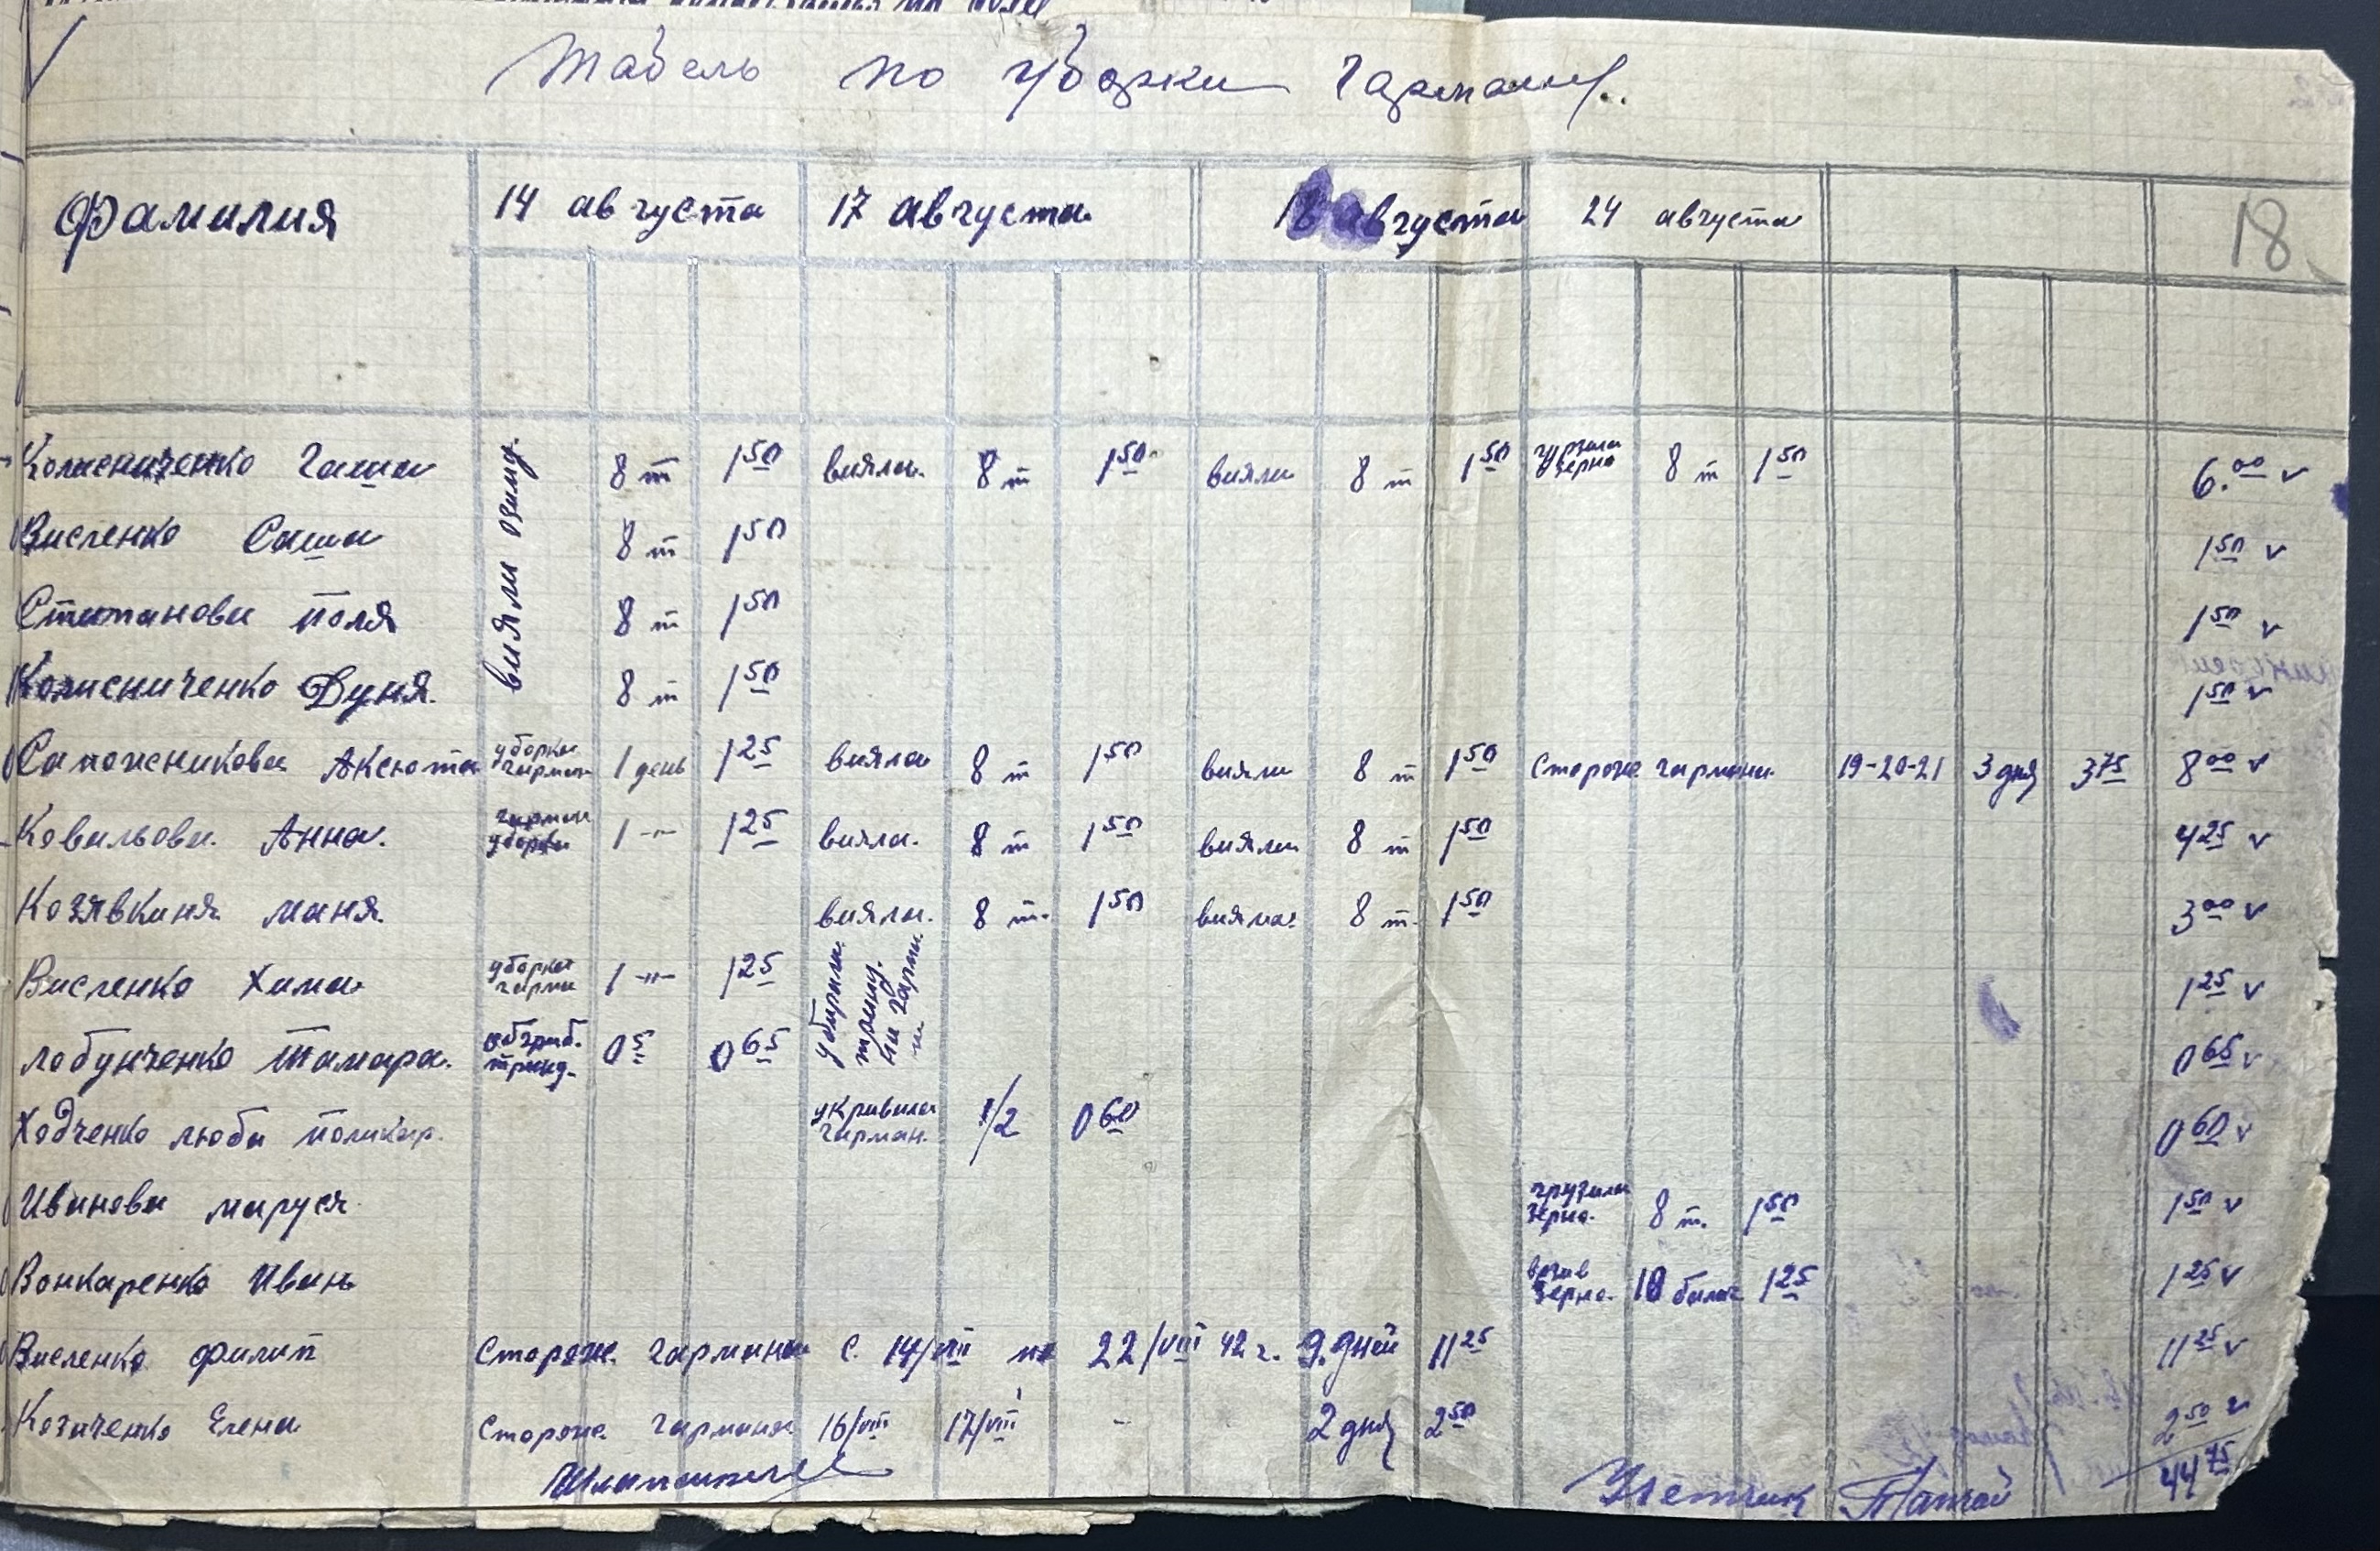 Табель по уборки гарману.
Фамилия 14 августа 17 августа 18 августа 24 августа 18
Колисниченко Гаша вияли озиму. 8 т 1 50 вияла. 8 т 1 50 вияли 8 т 1 50 грузила зерно 8 т 1 50 6.00 v
Висленко Саша 8 т 1 50 1 50 v
Стипанова Поля 8 т 1 50 1 50 v
Колисниченко Дуня. 8 т 1 50 1 50 v
Сапожникова Аксюта уборка гарман 1 день 1 25 вияла 8 т 1 50 вияли 8 т 1 50 Стороже гармана. 19-20-21 3 дня 3 75 8 00 v
Ковальова. Анна. гарман уборка 1 -"- 1 25 вияла. 8 т 1 50 вияли 8 т 1 50 4 25 v
Козявкиня маня вияла. 8 т. 1 50 вияла. 8 т. 1 50 3 00 v
Висленко Хима уборка гарма 1 -"- 1 25 убирали на гарма 1 25 v
Лобунченко Тамара. 0 5 0 65 0 65 v
Ходченко люба поликар. укривала гарман. 1/2 0 60 0 60 v
Иванова маруся грузила зерно. 8 т. 1 50 1 50 v
Вонкаренко Иван возив зерно. 10 1 25 1 25 v
Висленко филип Стороже. гармана с. 14/VIII по 22/VIII 42 г. 9 дней 11 25 11 25 v
Козаченко Елена Стороже гармана 16/VIII 17/VIII - 2 дня 2 50 2 50 v
Учетчик 44 75